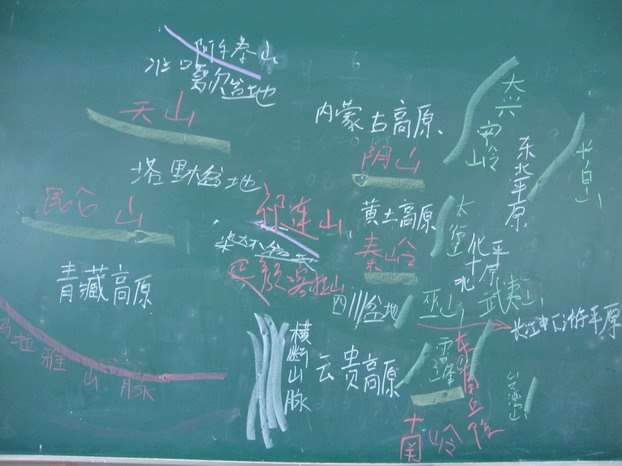 阿尔泰山
准噶尔盆地
天山
内蒙古高原
大兴安岭
长白山
东北平原
阴山
塔里木盆地
昆仑山
祁连山
黄土高原
太行
秦岭
华北平原
柴达木盆地
青藏高原
四川盆地
巫山
武夷山
长江中下游平原
横断山脉
云贵高原
雪峰
东南丘陵
拉雅山脉
南岭